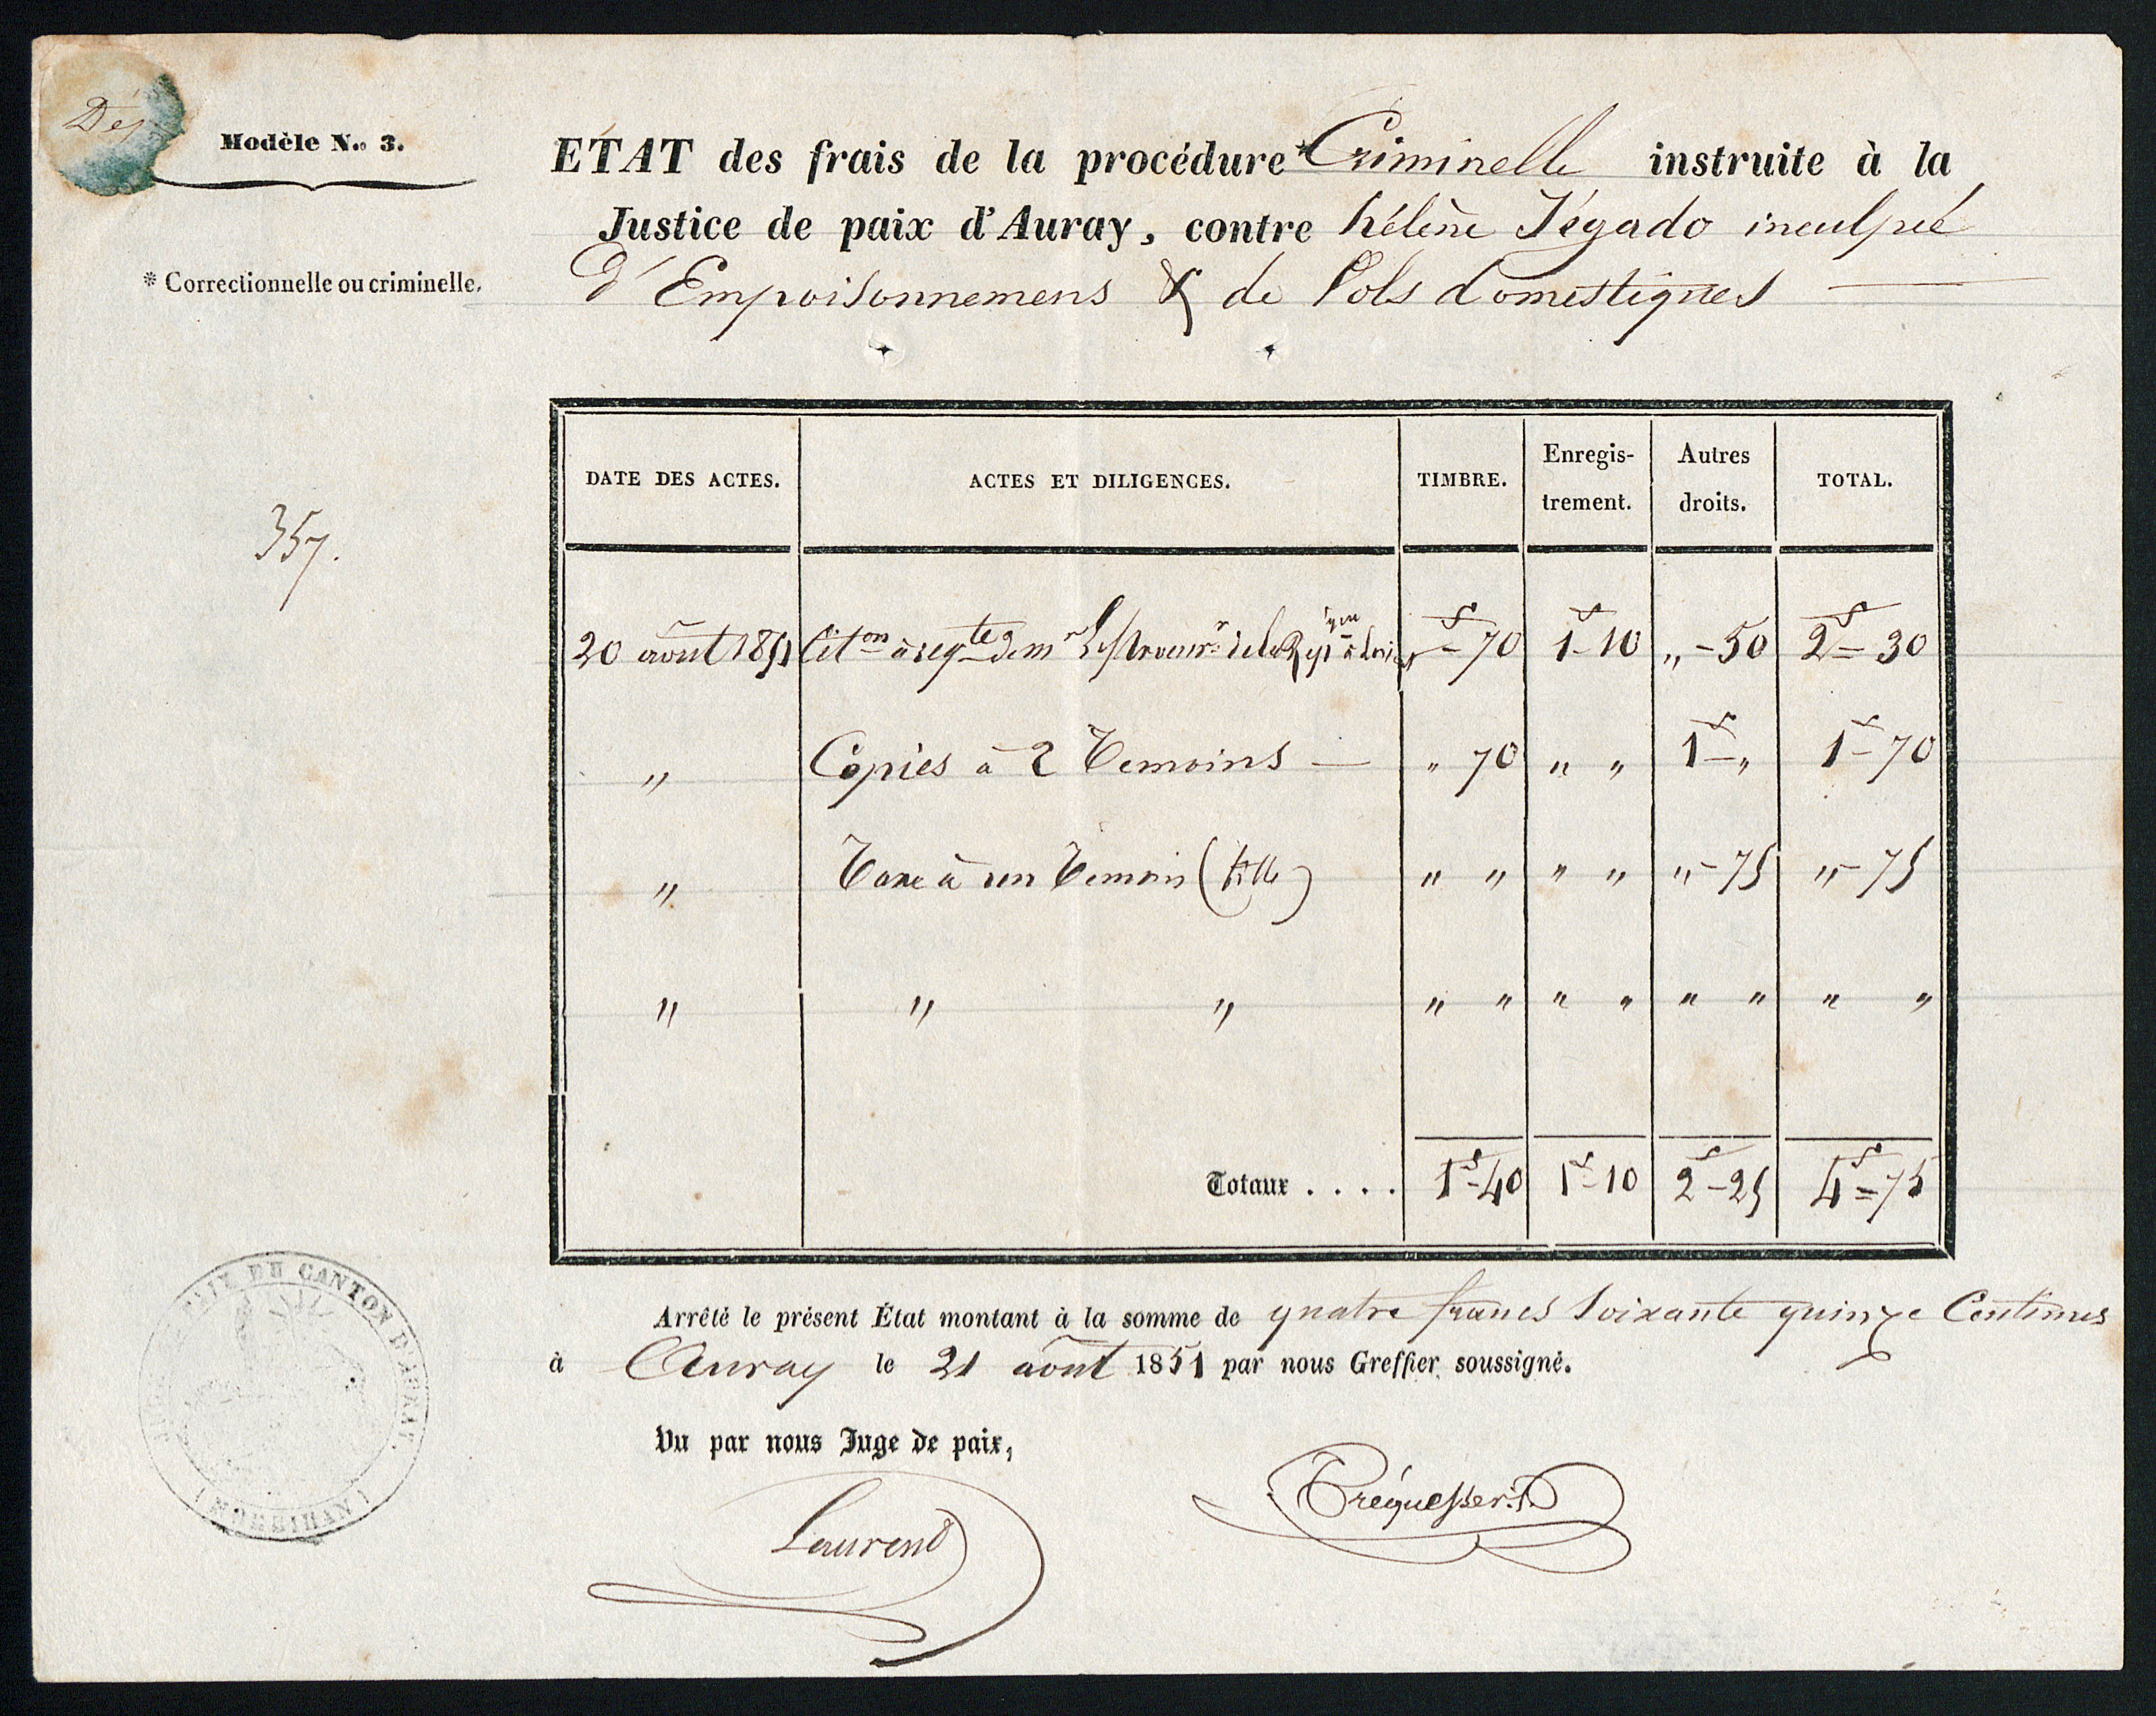 Modèle N.o 3.
ÉTAT des frais de la procédure * Criminelle instruite à la
Justice de paix d'Auray, contre hélène Jégado inculpée
* Correctionnelle ou criminelle.
d'Empoisonnemens & de Vols domestiques
357.
DATE DES ACTES. ACTES ET DILIGENCES. TIMBRE. Enregis-trement. Autres droits. TOTAL.
20 août 1851 Cit.on à reqte de mr le procurr de la Rep. " - 70 1 - 10 " - 50 2 = 30
" Copies à 2 Temoins — " 70 " " 1 - " 1 - 70
" Taxe à un Temoin (fille) " " " " " - 75 " - 75
" " " " " " " " " " "
Totaux .... 1f - 40 1f - 10 2f - 25 4f = 75
Arrêté le présent État montant à la somme de quatre francs Soixante quinze Centimes
à Auray le 21 août 1851 par nous Greffier soussigné.
Vu par nous Juge de paix,
Laurent
PAIX DU CANTON D'AURAY.
(MORBIHAN)